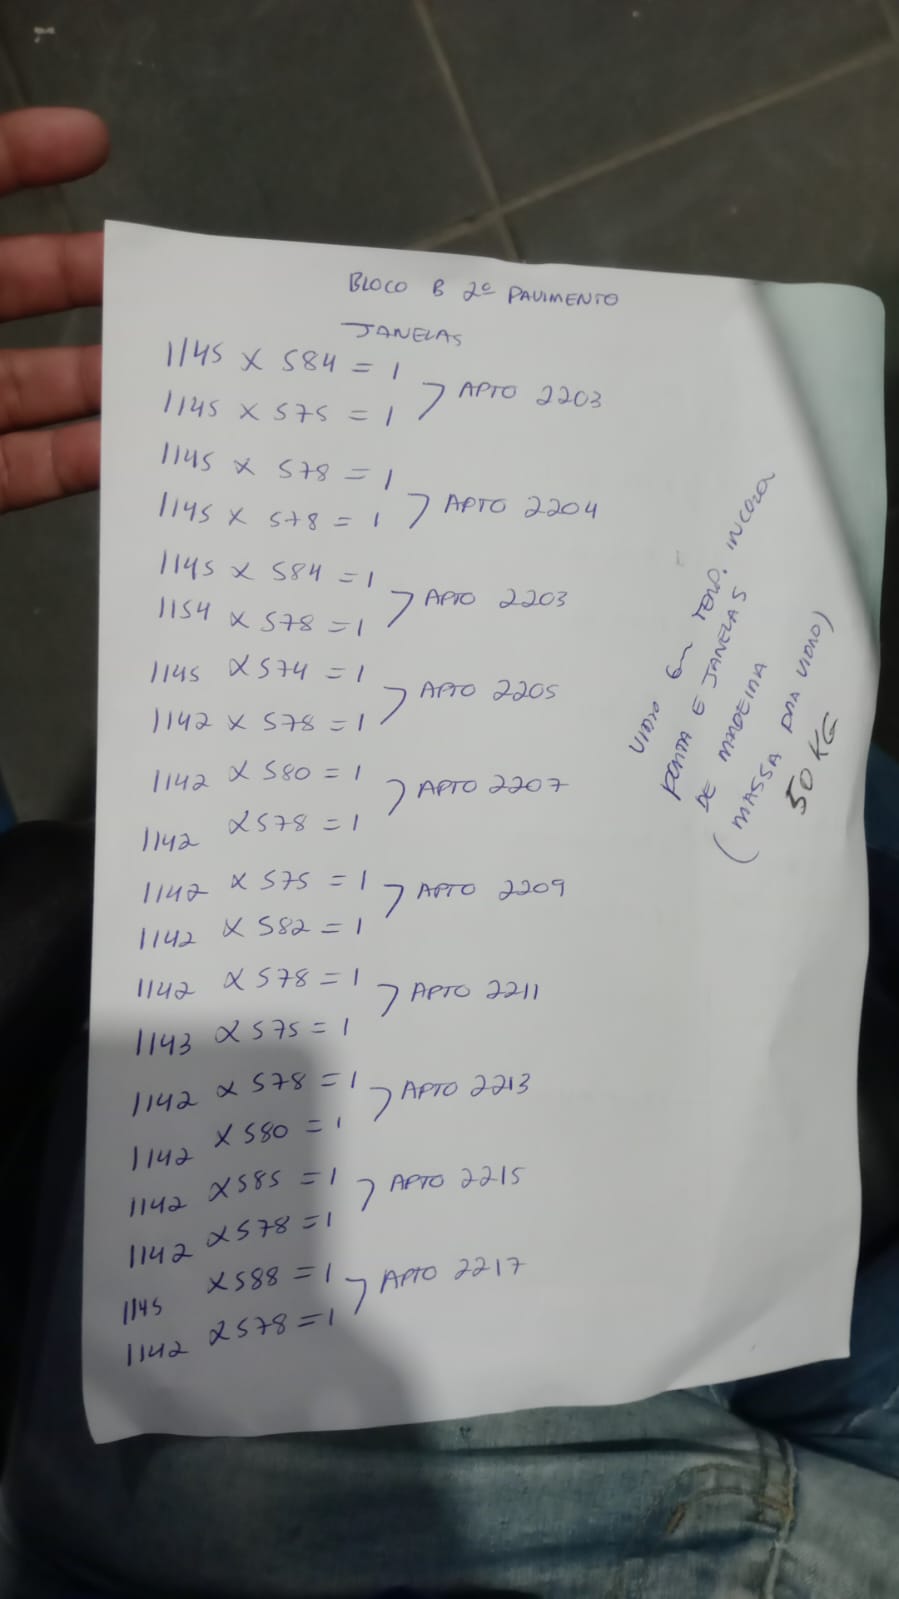 BLOCO B 2º PAVIMENTO
JANELAS
1145 x 584 = 1
1145 x 575 = 1
APTO 2203
1145 x 578 = 1
1145 x 578 = 1
APTO 2204
1145 x 584 = 1
1154 x 578 = 1
APTO 2203
1145 x 574 = 1
1142 x 578 = 1
APTO 2205
1142 x 580 = 1
1142 x 578 = 1
APTO 2207
1142 x 575 = 1
1142 x 582 = 1
APTO 2209
1142 x 578 = 1
1143 x 575 = 1
APTO 2211
1142 x 578 = 1
1142 x 580 = 1
APTO 2213
1142 x 585 = 1
1142 x 578 = 1
APTO 2215
1145 x 588 = 1
1142 x 578 = 1
APTO 2217
VIDRO 6m TEMP. INCOLOR
PORTA E JANELAS
DE MADEIRA
(MASSA PRA VIDRO)
50 KG